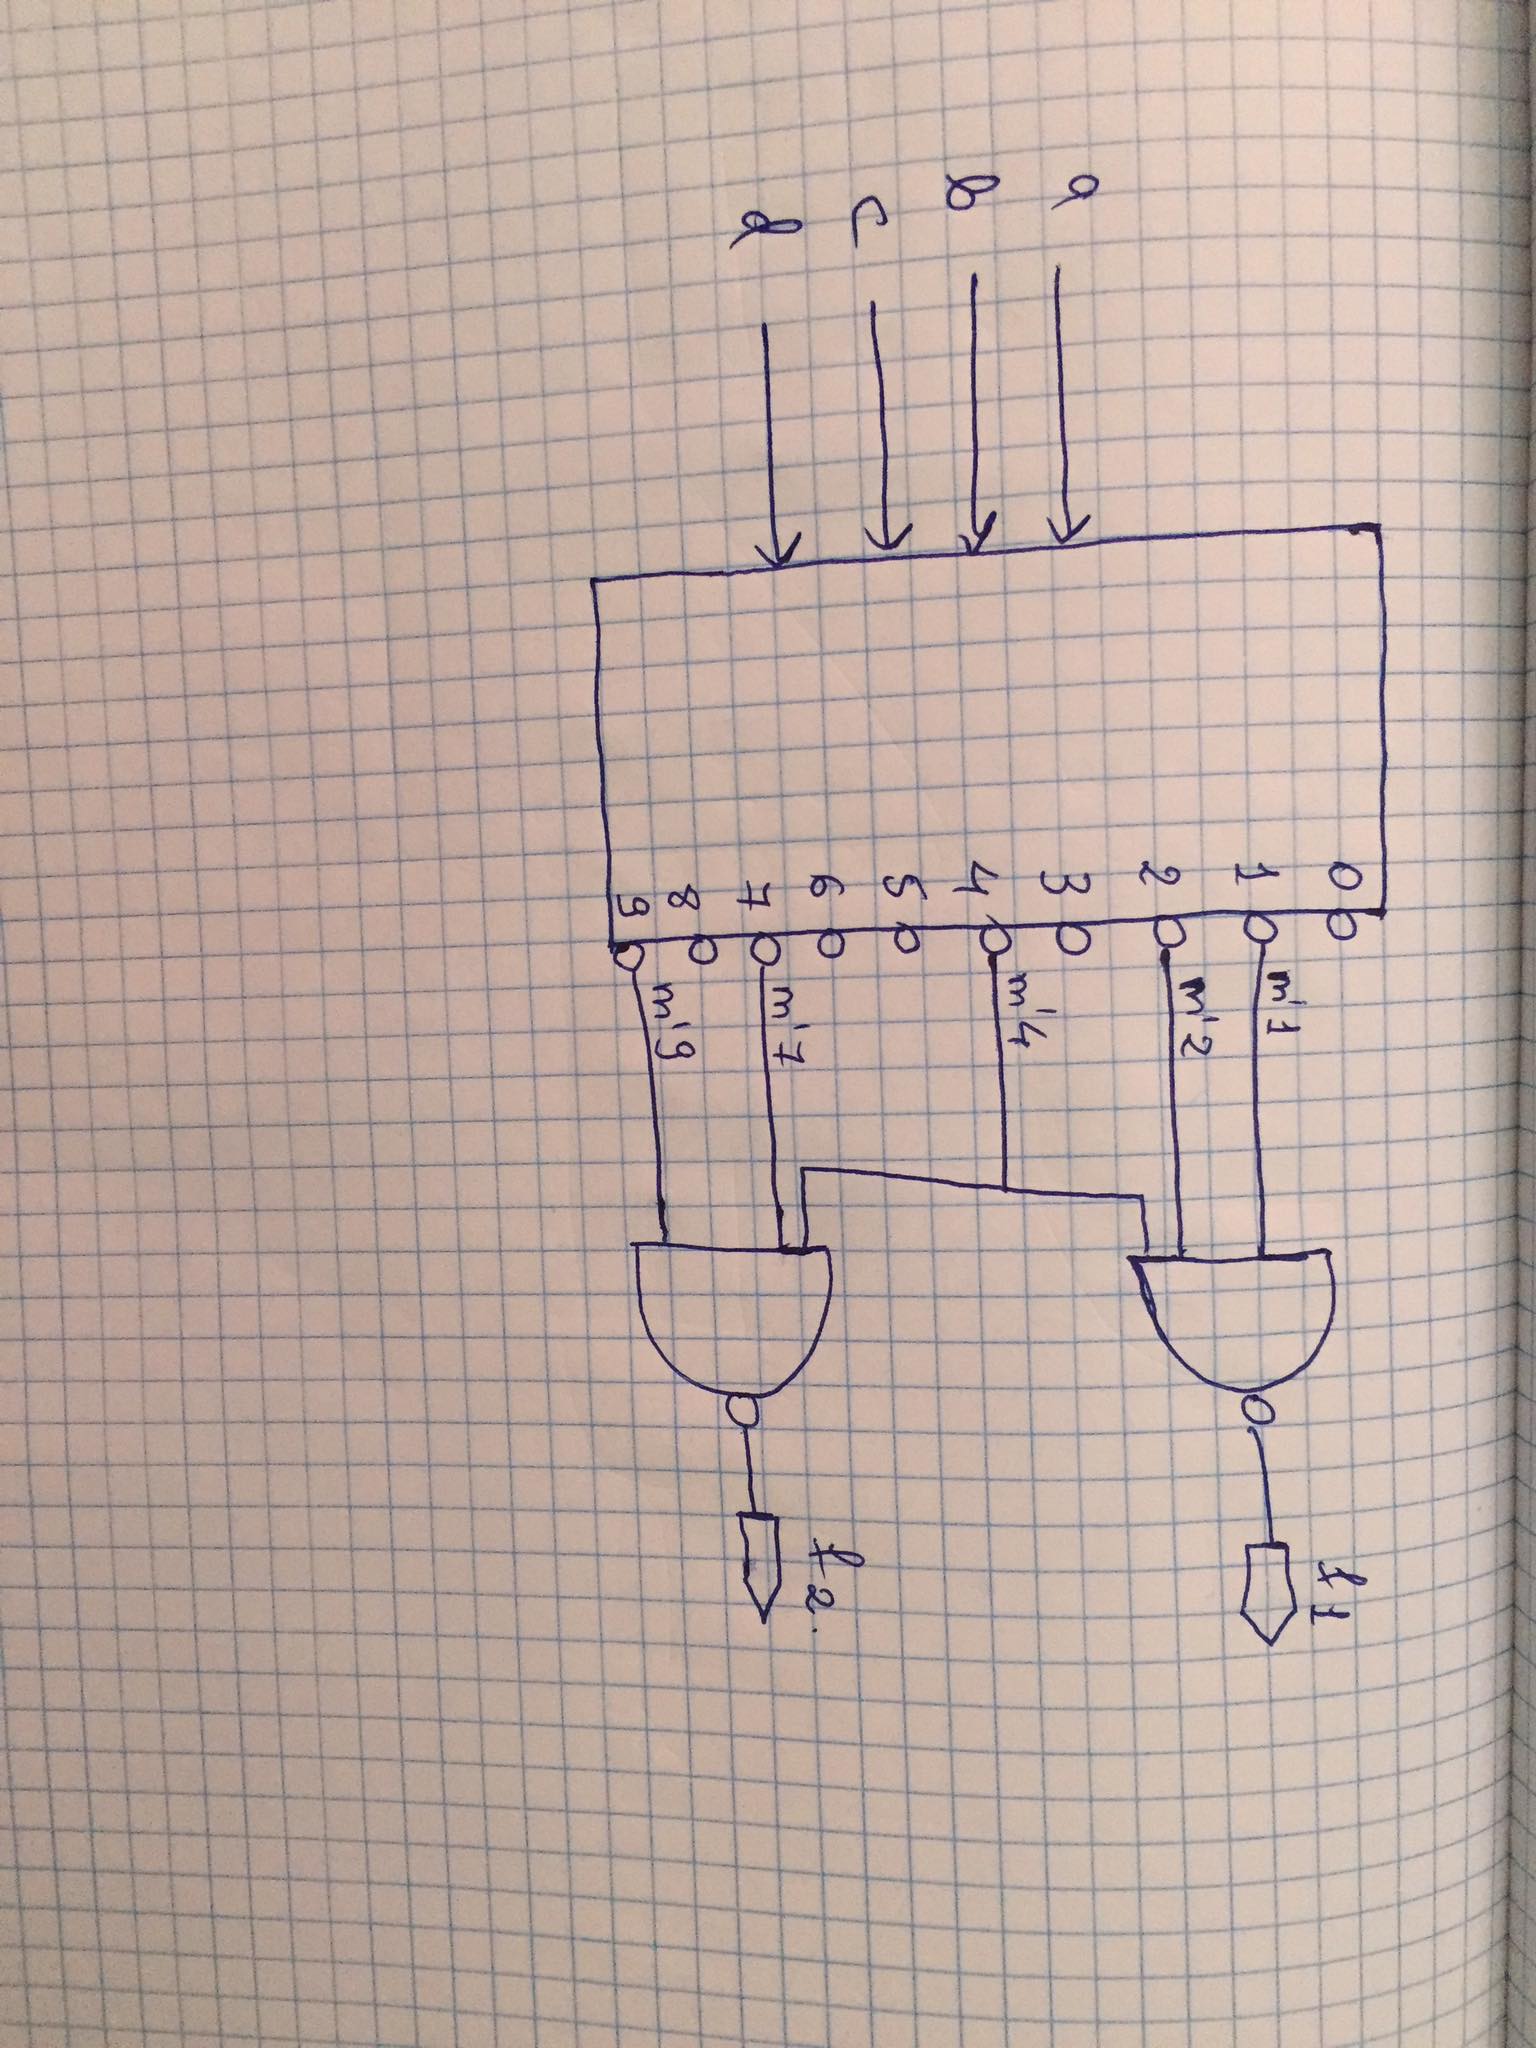 a
b
c
d
0
1
2
3
4
5
6
7
8
9
m'1
m'2
m'4
m'7
m'9
f1
f2